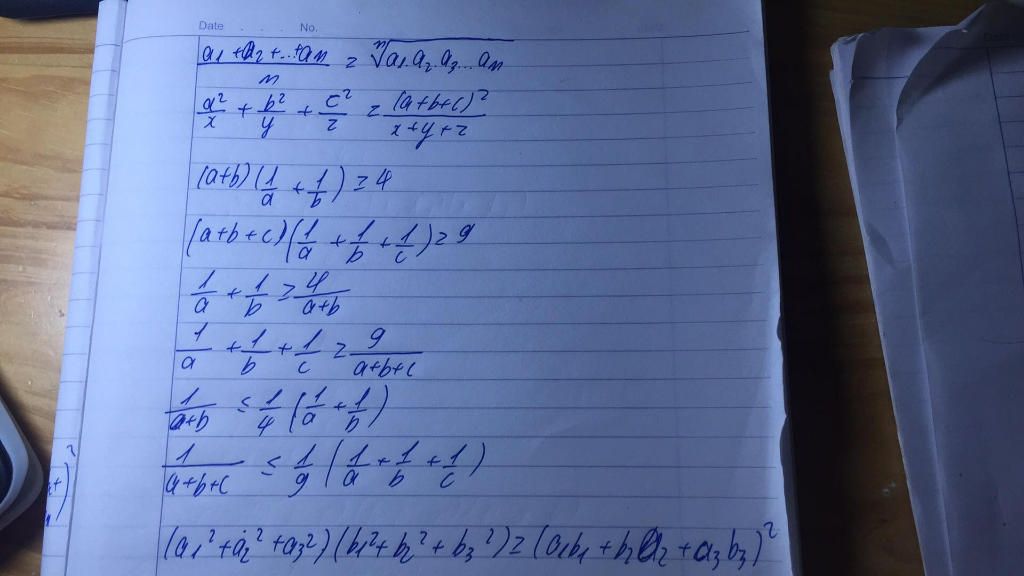 Date No.
(a₁ + a₂ + ... + aₙ)/n ≥ ⁿ√(a₁.a₂.a₃...aₙ)
a²/x + b²/y + c²/z ≥ (a+b+c)²/(x+y+z)
(a+b)(1/a + 1/b) ≥ 4
(a+b+c)(1/a + 1/b + 1/c) ≥ 9
1/a + 1/b ≥ 4/(a+b)
1/a + 1/b + 1/c ≥ 9/(a+b+c)
1/(a+b) ≤ 1/4 (1/a + 1/b)
1/(a+b+c) ≤ 1/9 (1/a + 1/b + 1/c)
(a₁² + a₂² + a₃²)(b₁² + b₂² + b₃²) ≥ (a₁b₁ + b₂a₂ + a₃b₃)²